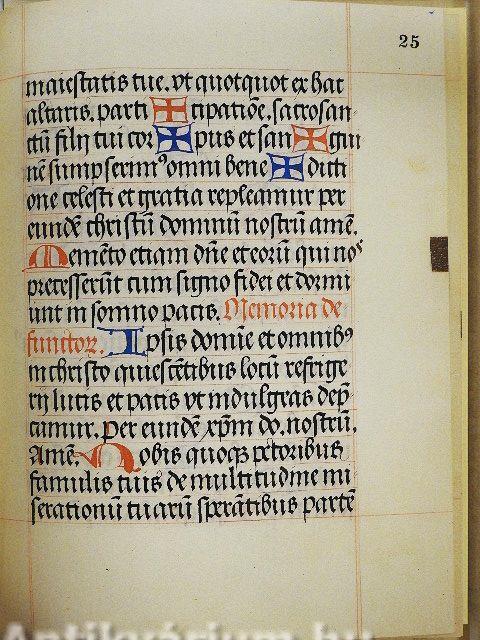 25
maiestatis tue. vt quotquot ex hac
altaris. parti ✠ cipatiōe. sacrosan-
ctū filij tui cor ✠ pus et san ✠ gui
nē sumpserimꝰ omni bene ✠ dicti
one celesti et gratia repleamur per
eundē christū dominū nostrū amē.
Memēto etiam dn̄e et eorū qui nos
precesserūt cum signo fidei et dormi
unt in somno pacis. Memoria de
functorꝝ. Ipsis domīe et omnibꝰ
in christo quiescētibus locū refrige
rij lucis et pacis vt indulgeas dep̄
camur. Per eundē xp̄m do. nostrū.
Amē. Nobis quoqꝫ pctoribus
famulis tuis de multitudine mi
serationū tuarū sperātibus partē
Antikvárium.hu